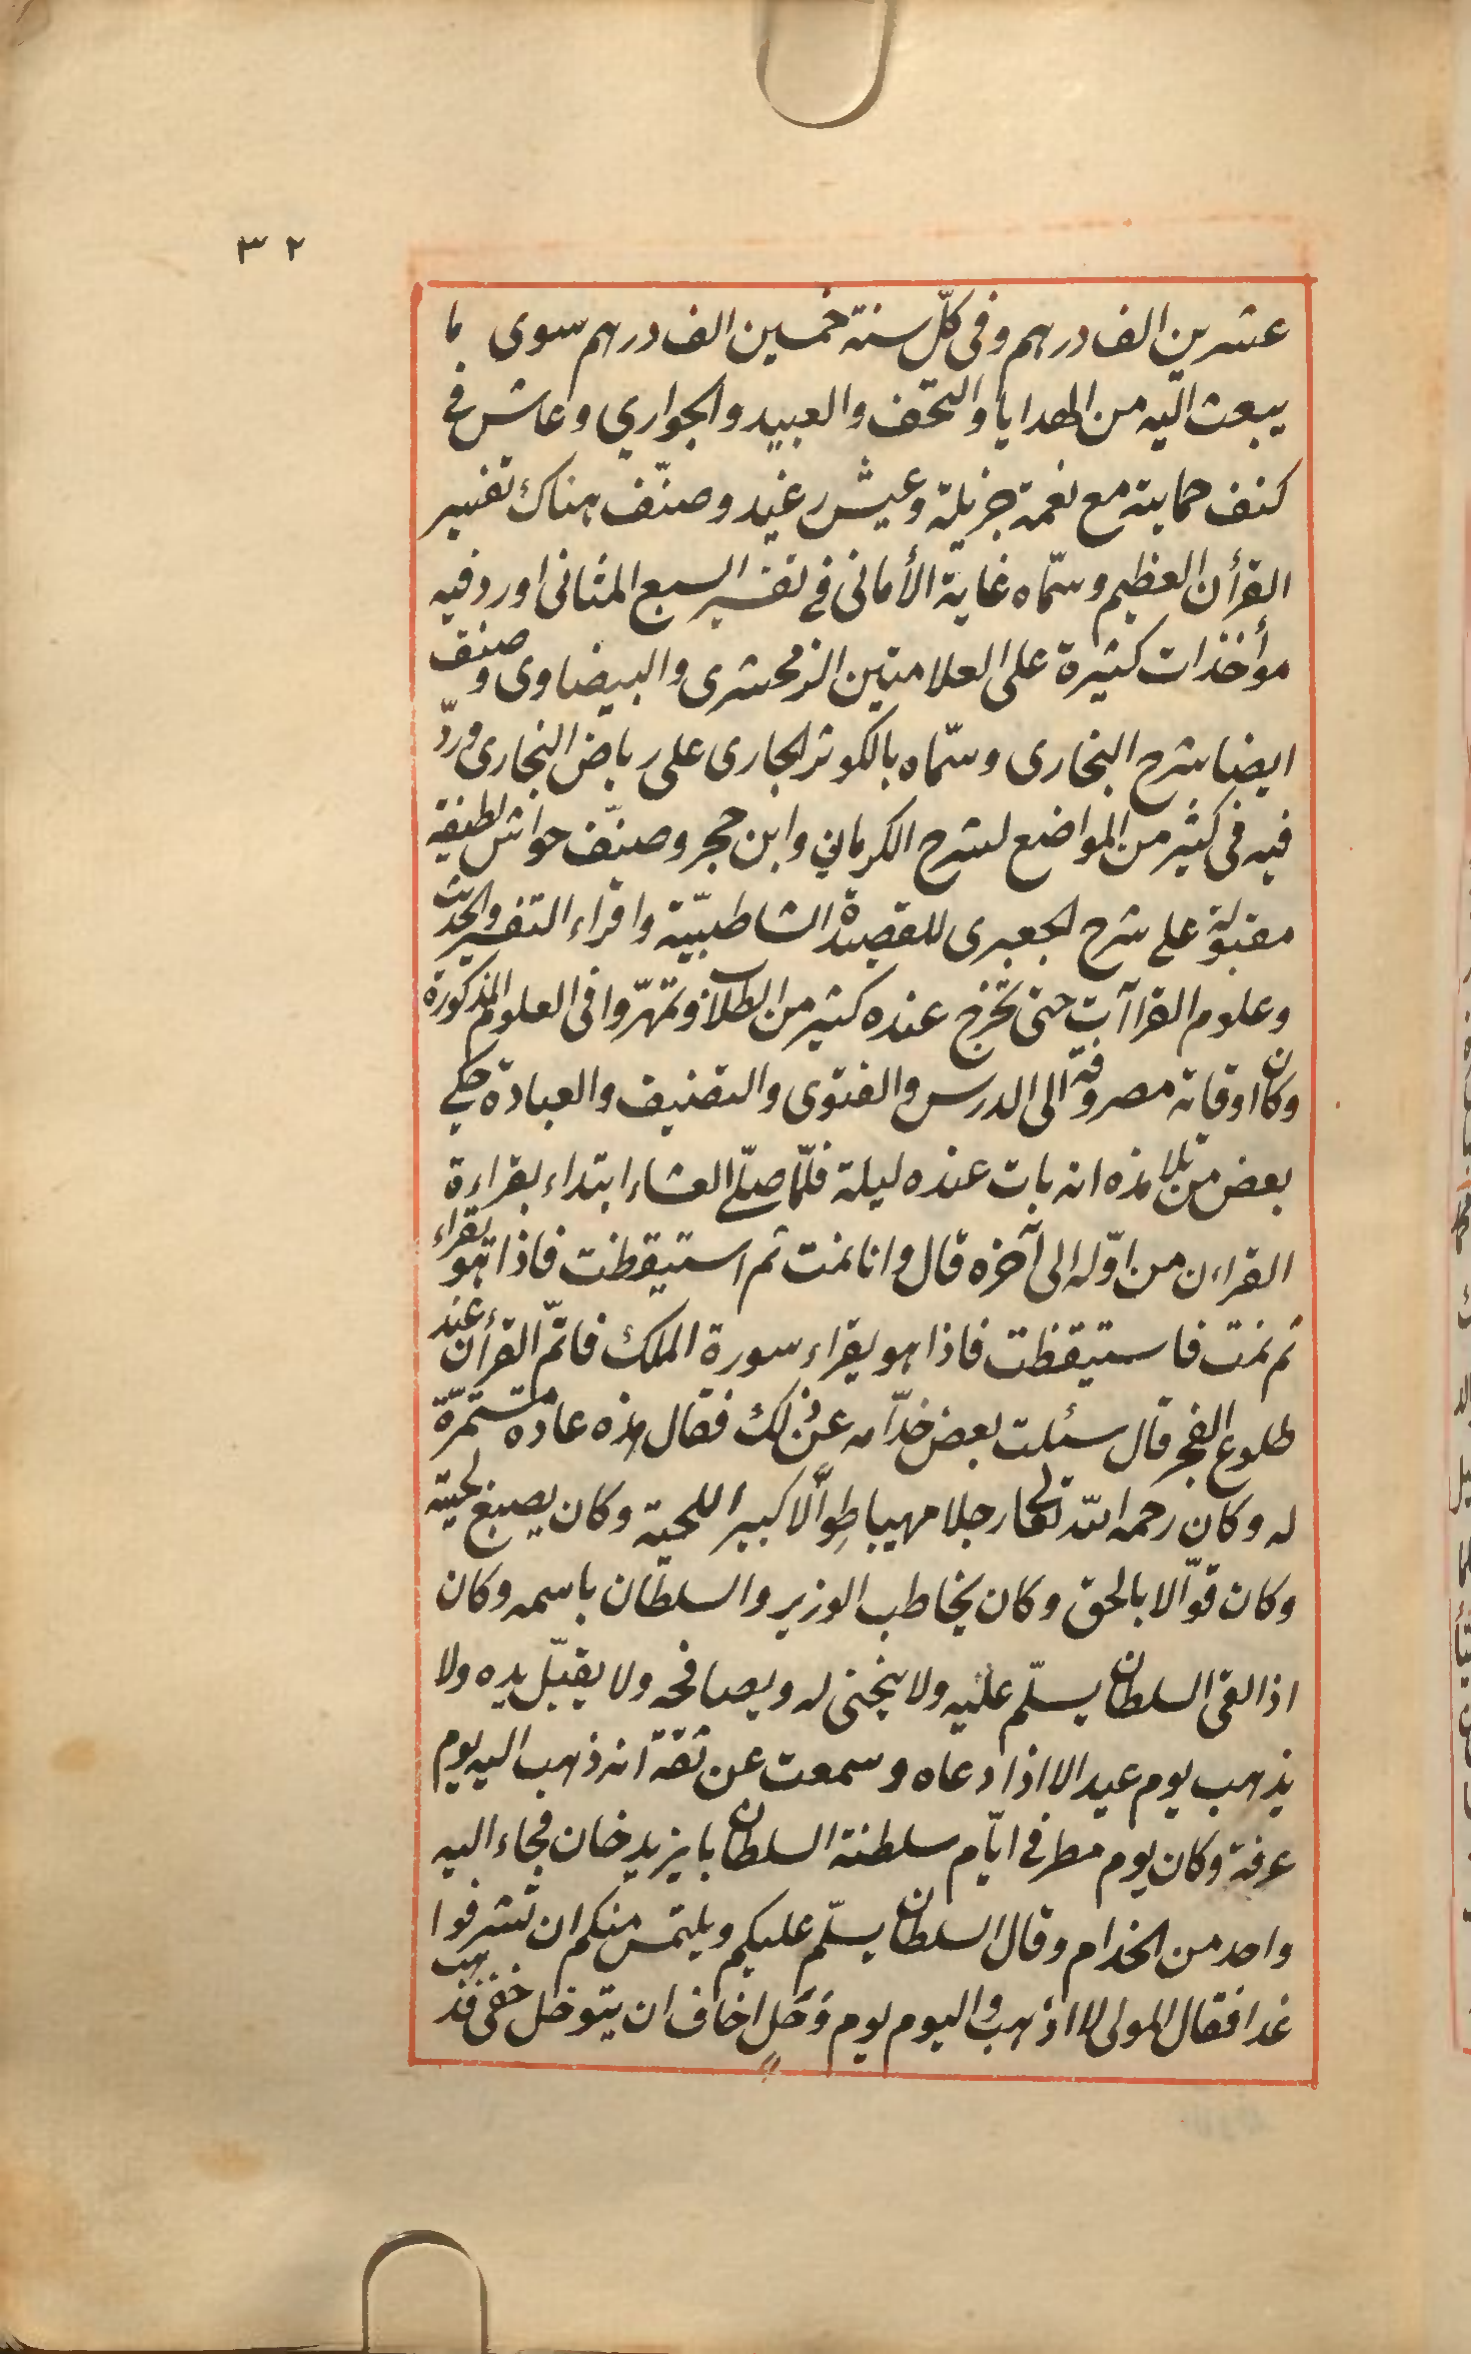 ٣٢
عشرين الف درهم وفى كلّ سنة خمسين الف درهم سوى ما
يبعث اليه من الهدايا والتحف والعبيد والجواري وعاش في
كنف حمايته مع نعمة جزيلة وعيش رغيد وصنّف هناك تفسير
القرأن العظيم وسمّاه غاية الأمانى في تفسير السبع المثانى اورد فيه
مؤأخذات كثيرة على العلامتين الزمحشرى والبيضاوى وصنف
ايضا شرح البخارى وسمّاه بالكوثر الجارى على رياض البخارى وردّ
فيه فى كثير من المواضع لشرح الكرماني وابن حجر وصنّف حواش لطيفة
مقبولة على شرح الجعبرى للقصيدة الشاطبيّة واقراء التفسير والحديث
وعلوم القراآت حتى تخرّج عنده كثير من الطلاب وتمهّروا فى العلوم المذكورة
وكان اوقاته مصروفة الى الدرس والفتوى والتصنيف والعبادة حكي
بعض من تلامذه انه بات عنده ليلة فلمّا صلّى العشاء ابتداء بقراءة
القراءن من اوّله الى آخره قال وانا نمت ثم استيقظت فاذا هو يقراء
ثم نمت فاستيقظت فاذا هو يقراء سورة الملك فاتمّ القرأن عند
طلوع الفجر قال سئلت بعض خدّامه عن ذلك فقال هذه عادة مستمرّة
له وكان رحمه الله تعالى رجلا مهيبا طوالا كبير اللحية وكان يصبغ لحيته
وكان قوّالا بالحق وكان يخاطب الوزير والسلطان باسمه وكان
اذا لقى السلطان يسلّم عليه ولا ينحنى له ويصافحه ولا يقبّل يده ولا
يذهب يوم عيد الا اذا دعاه وسمعت عن ثقة انه ذهب اليه يوم
عرفة وكان يوم مطر في ايّام سلطنة السلطان بايزيد خان فجاء اليه
واحد من الخدام وقال السلطان يسلّم عليكم ويلتمس منكم ان تشرفوا
غدا فقال المولى لا اذهب واليوم يوم وَحَلٍ اخاف ان يتوحل خفى فذهب